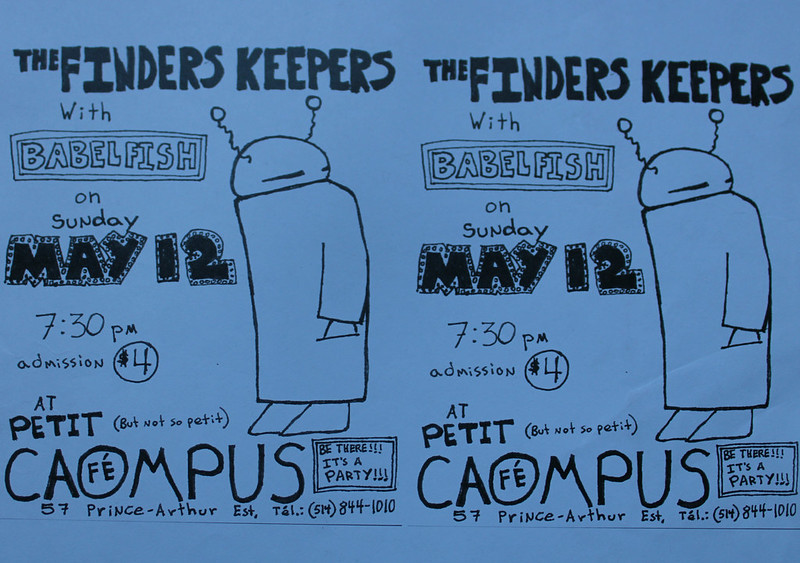 THE FINDERS KEEPERS
With
BABELFISH
on
SUNday
MAY 12
7:30 PM
admission $4
AT
PETIT (But not so petit)
CAFÉOMPUS
BE THERE!!!
IT'S A
PARTY!!!
57 Prince-Arthur Est, Tél.: (514) 844-1010
THE FINDERS KEEPERS
With
BABELFISH
on
SUNday
MAY 12
7:30 PM
admission $4
AT
PETIT (But not so petit)
CAFÉOMPUS
BE THERE!!!
IT'S A
PARTY!!!
57 Prince-Arthur Est, Tél.: (514) 844-1010